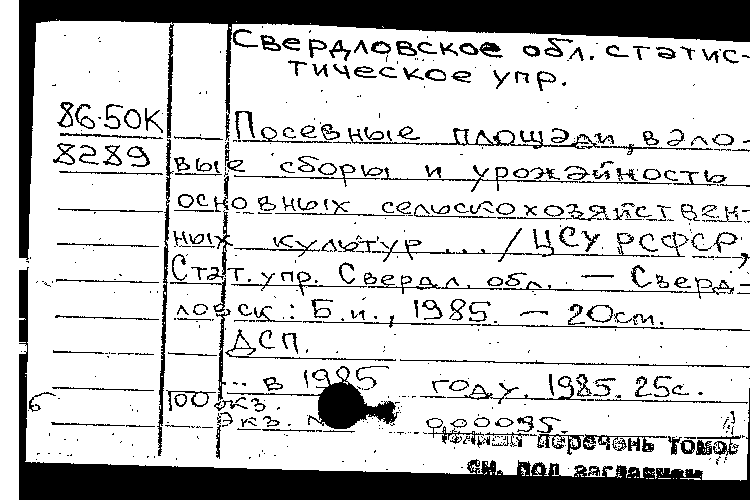 Свердловское обл. статис-
тическое упр.
86-50К
Посевные площади, вало-
8289
вые сборы и урожайность
основных сельскохозяйствен-
ных культур ... / ЦСУ РСФСР,
Стат. упр. Свердл. обл. — Сверд-
ловск : Б.и., 1985. — 20см.
ДСП.
... в 1985 году. 1985. 25с.
б 100экз.
Экз. № 000095.
Полный перечень томов
см. под заглавием